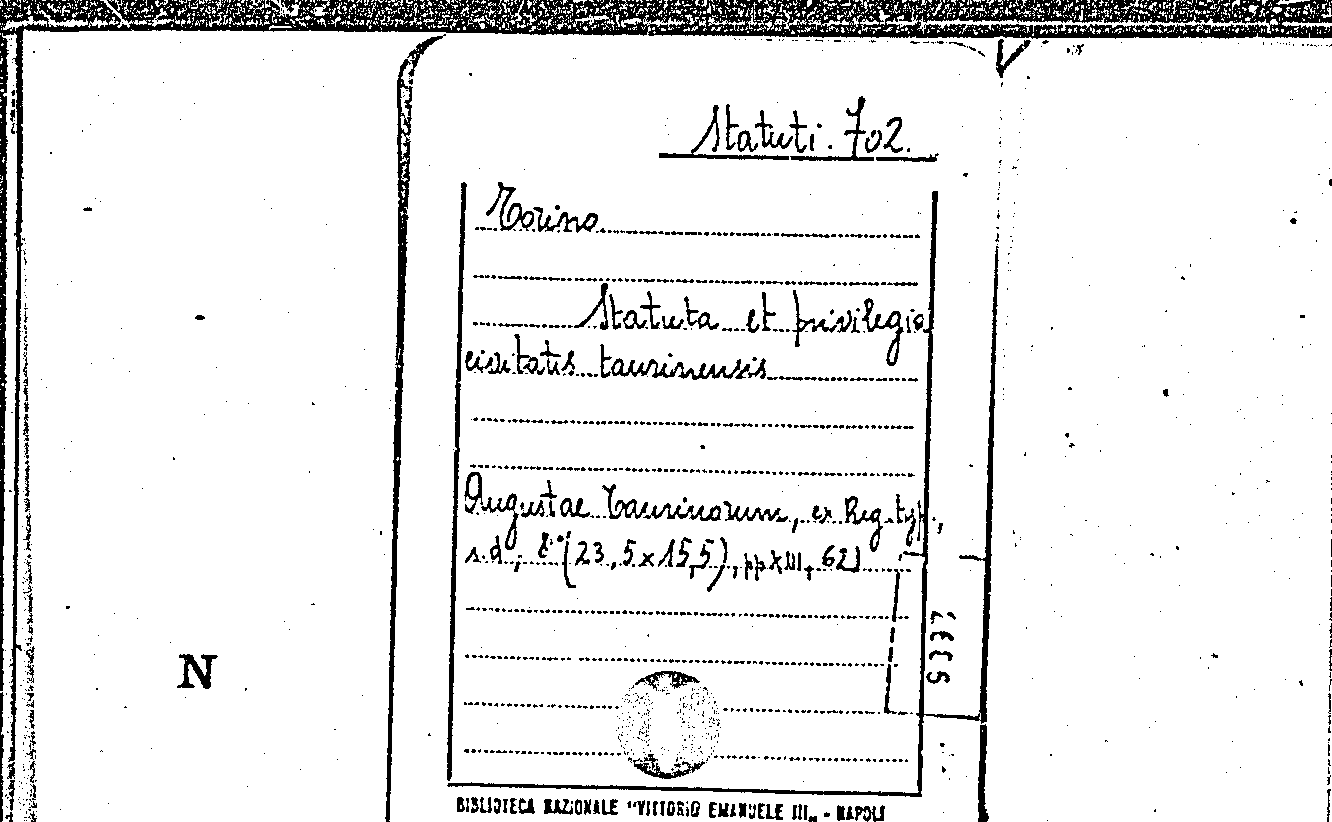 Statuti. 702.
Torino
Statuta et privilegia
civitatis taurinensis
Augustae Taurinorum, ex Reg. typ.,
s.d., 8°(23,5x15,5), pp XIII, 621
N
BIBLIOTECA NAZIONALE "VITTORIO EMANUELE III„ - NAPOLI